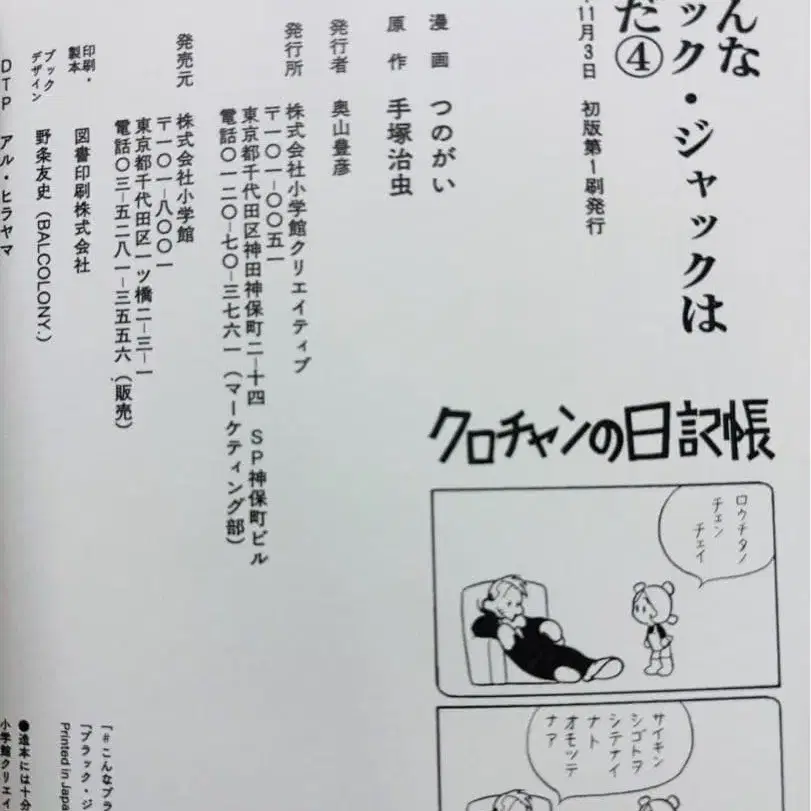 んな
ック・ジャックは
だ④
11月3日 初版第1刷発行
漫画 つのがい
原作 手塚治虫
発行者 奥山豊彦
発行所 株式会社小学館クリエイティブ
〒一〇一-〇〇五一
東京都千代田区神田神保町二-十四 SP神保町ビル
電話〇一二〇-七〇-三七六一(マーケティング部)
発売元 株式会社小学館
〒一〇一-八〇〇一
東京都千代田区一ツ橋二-三-一
電話〇三-五二八一-三五五六(販売)
印刷・製本 図書印刷株式会社
ブックデザイン 野条友史(BALCOLONY.)
DTP アル・ヒラヤマ
クロチャンの日記帳
ロウチタノ
チェン
チェイ
サイキン
シゴトヲ
シテナイ
ナト
オモッテ
ナア
「#こんなブラ
「ブラック・ジ
Printed in Japa
●造本には十分
小学館クリエイ